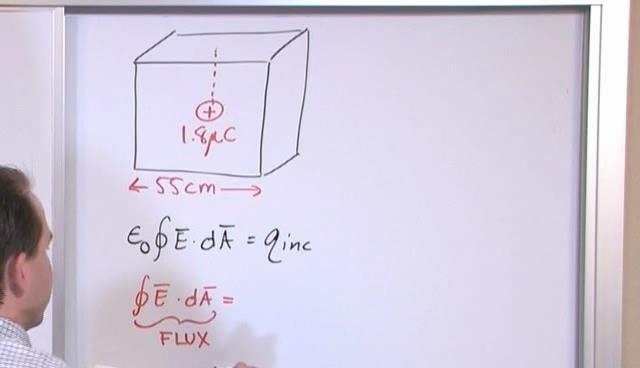 +
1.8μC
← 55cm →
ε₀∮E̅·dA̅ = qinc
∮E̅·dA̅ =
FLUX